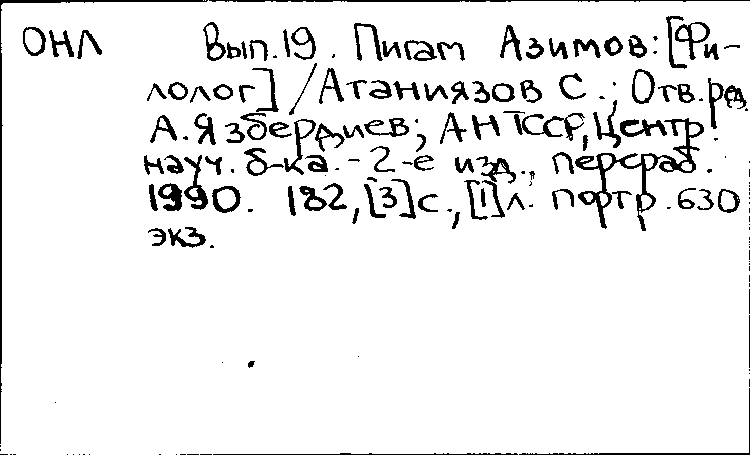 ОНЛ Вып. 19. Пигам Азимов: [Фи-
лолог] / Атаниязов С.; Отв. ред.
А. Язбердиев; АН ТССР, Центр.
науч. б-ка. - 2-е изд., перераб.
1990. 182, [3] с., [1] л. портр. 630
экз.